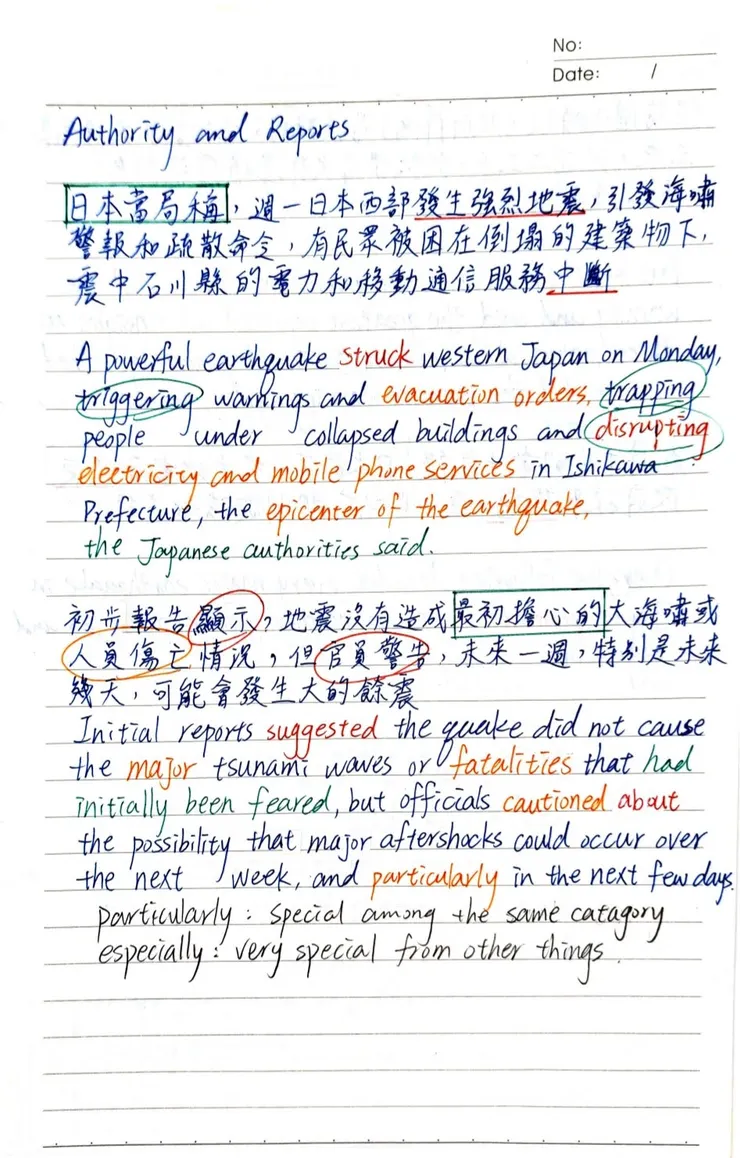 No:
Date: /
Authority and Reports
日本當局稱，週一日本西部發生強烈地震，引發海嘯
警報和疏散命令，有民眾被困在倒塌的建築物下，
震中石川縣的電力和移動通信服務中斷
A powerful earthquake struck western Japan on Monday,
triggering warnings and evacuation orders, trapping
people under collapsed buildings and disrupting
electricity and mobile phone services in Ishikawa
Prefecture, the epicenter of the earthquake,
the Japanese authorities said.
初步報告顯示，地震沒有造成最初擔心的大海嘯或
人員傷亡情況，但官員警告，未來一週，特別是未來
幾天，可能會發生大的餘震
Initial reports suggested the quake did not cause
the major tsunami waves or fatalities that had
initially been feared, but officials cautioned about
the possibility that major aftershocks could occur over
the next week, and particularly in the next few days.
particularly: special among the same catagory
especially: very special from other things.